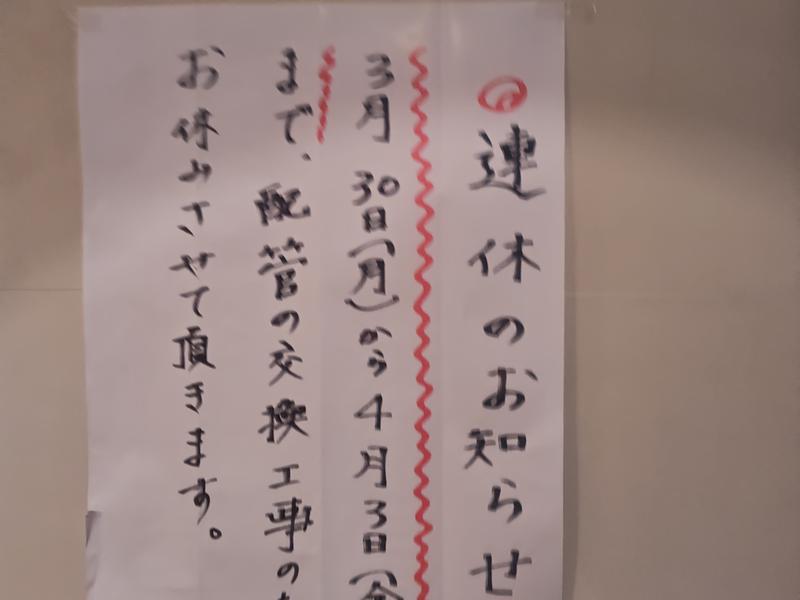 連休のお知らせ
3月30日(月)から4月3日(金
まで、配管の交換工事の
お休みさせて頂きます。